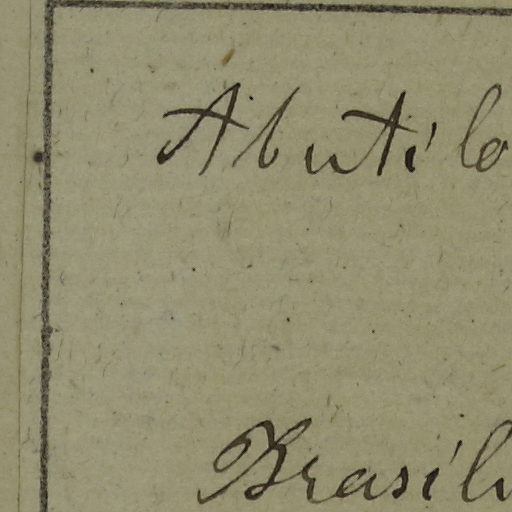 Abutilo
Brasili